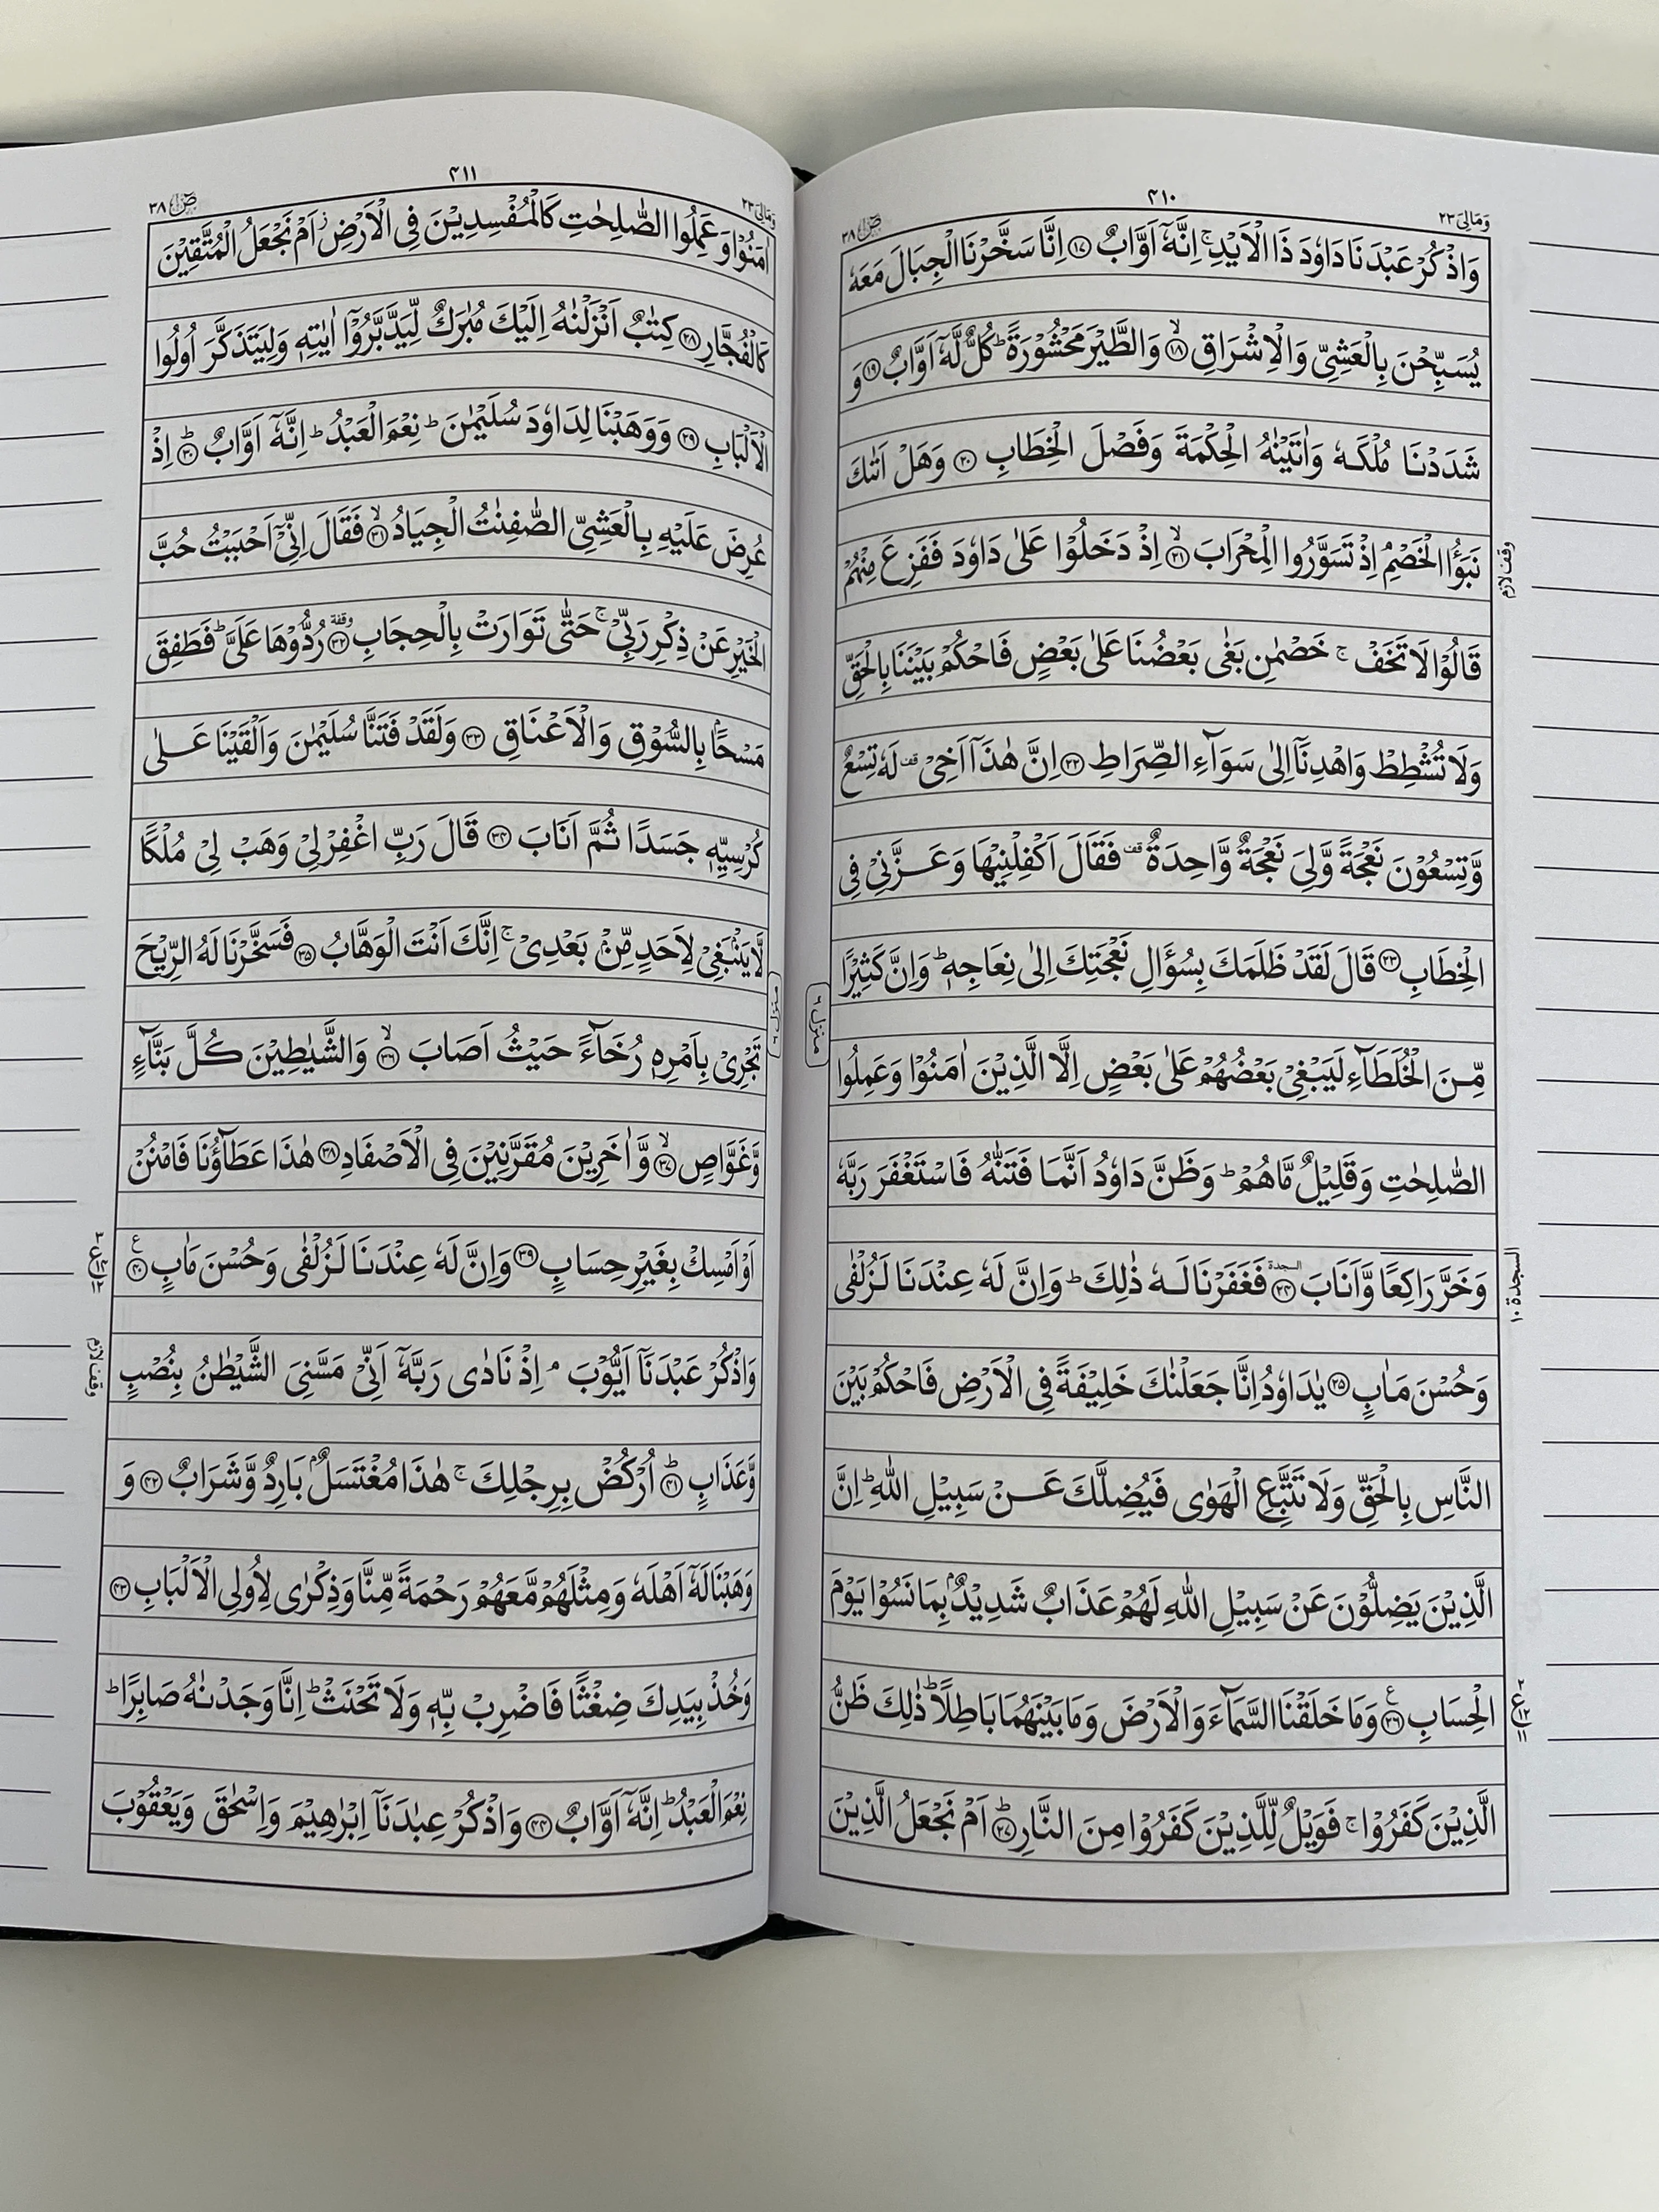 وَمَالِیَ ٢٣
٤١٠
صٓ ٣٨
وَاذْكُرْ عَبْدَنَا دَاوٗدَ ذَا الْاَیْدِ ۚ اِنَّهٗۤ اَوَّابٌ ﴿١٧﴾ اِنَّا سَخَّرْنَا الْجِبَالَ مَعَهٗ
یُسَبِّحْنَ بِالْعَشِیِّ وَالْاِشْرَاقِ ﴿١٨﴾ۙ وَالطَّیْرَ مَحْشُوْرَةً ؕ كُلٌّ لَّهٗۤ اَوَّابٌ ﴿١٩﴾ وَ
شَدَدْنَا مُلْكَهٗ وَاٰتَیْنٰهُ الْحِكْمَةَ وَفَصْلَ الْخِطَابِ ﴿٢٠﴾ وَهَلْ اَتٰىكَ
نَبَؤُا الْخَصْمِ ۘ اِذْ تَسَوَّرُوا الْمِحْرَابَ ﴿٢١﴾ۙ اِذْ دَخَلُوْا عَلٰی دَاوٗدَ فَفَزِعَ مِنْهُمْ
قَالُوْا لَا تَخَفْ ۚ خَصْمٰنِ بَغٰی بَعْضُنَا عَلٰی بَعْضٍ فَاحْكُمْ بَیْنَنَا بِالْحَقِّ
وَلَا تُشْطِطْ وَاهْدِنَاۤ اِلٰی سَوَآءِ الصِّرَاطِ ﴿٢٢﴾ اِنَّ هٰذَاۤ اَخِیْ قف لَهٗ تِسْعٌ
وَّتِسْعُوْنَ نَعْجَةً وَّلِیَ نَعْجَةٌ وَّاحِدَةٌ قف فَقَالَ اَكْفِلْنِیْهَا وَعَزَّنِیْ فِی
الْخِطَابِ ﴿٢٣﴾ قَالَ لَقَدْ ظَلَمَكَ بِسُؤَالِ نَعْجَتِكَ اِلٰی نِعَاجِهٖ ؕ وَاِنَّ كَثِیْرًا
مِّنَ الْخُلَطَآءِ لَیَبْغِیْ بَعْضُهُمْ عَلٰی بَعْضٍ اِلَّا الَّذِیْنَ اٰمَنُوْا وَعَمِلُوا
الصّٰلِحٰتِ وَقَلِیْلٌ مَّاهُمْ ؕ وَظَنَّ دَاوٗدُ اَنَّمَا فَتَنّٰهُ فَاسْتَغْفَرَ رَبَّهٗ
وَخَرَّ رَاكِعًا وَّاَنَابَ ﴿٢٤﴾ السجدة فَغَفَرْنَا لَهٗ ذٰلِكَ ؕ وَاِنَّ لَهٗ عِنْدَنَا لَزُلْفٰی
وَحُسْنَ مَاٰبٍ ﴿٢٥﴾ یٰدَاوٗدُ اِنَّا جَعَلْنٰكَ خَلِیْفَةً فِی الْاَرْضِ فَاحْكُمْ بَیْنَ
النَّاسِ بِالْحَقِّ وَلَا تَتَّبِعِ الْهَوٰی فَیُضِلَّكَ عَنْ سَبِیْلِ اللّٰهِ ؕ اِنَّ
الَّذِیْنَ یَضِلُّوْنَ عَنْ سَبِیْلِ اللّٰهِ لَهُمْ عَذَابٌ شَدِیْدٌۢ بِمَا نَسُوْا یَوْمَ
الْحِسَابِ ﴿٢٦﴾ع وَمَا خَلَقْنَا السَّمَآءَ وَالْاَرْضَ وَمَا بَیْنَهُمَا بَاطِلًا ؕ ذٰلِكَ ظَنُّ
الَّذِیْنَ كَفَرُوْا ۚ فَوَیْلٌ لِّلَّذِیْنَ كَفَرُوْا مِنَ النَّارِ ﴿٢٧﴾ؕ اَمْ نَجْعَلُ الَّذِیْنَ
وقف لازم
السجدة ١٠
٢ ع ١٢ ١١
منزل ٦
وَمَالِیَ ٢٣
٤١١
صٓ ٣٨
اٰمَنُوْا وَعَمِلُوا الصّٰلِحٰتِ كَالْمُفْسِدِیْنَ فِی الْاَرْضِ ز اَمْ نَجْعَلُ الْمُتَّقِیْنَ
كَالْفُجَّارِ ﴿٢٨﴾ كِتٰبٌ اَنْزَلْنٰهُ اِلَیْكَ مُبٰرَكٌ لِّیَدَّبَّرُوْۤا اٰیٰتِهٖ وَلِیَتَذَكَّرَ اُولُوا
الْاَلْبَابِ ﴿٢٩﴾ وَوَهَبْنَا لِدَاوٗدَ سُلَیْمٰنَ ؕ نِعْمَ الْعَبْدُ ؕ اِنَّهٗۤ اَوَّابٌ ﴿٣٠﴾ؕ اِذْ
عُرِضَ عَلَیْهِ بِالْعَشِیِّ الصّٰفِنٰتُ الْجِیَادُ ﴿٣١﴾ۙ فَقَالَ اِنِّیْۤ اَحْبَبْتُ حُبَّ
الْخَیْرِ عَنْ ذِكْرِ رَبِّیْ ۚ حَتّٰی تَوَارَتْ بِالْحِجَابِ ﴿٣٢﴾ وقفة رُدُّوْهَا عَلَیَّ ؕ فَطَفِقَ
مَسْحًۢا بِالسُّوْقِ وَالْاَعْنَاقِ ﴿٣٣﴾ وَلَقَدْ فَتَنَّا سُلَیْمٰنَ وَاَلْقَیْنَا عَلٰی
كُرْسِیِّهٖ جَسَدًا ثُمَّ اَنَابَ ﴿٣٤﴾ قَالَ رَبِّ اغْفِرْ لِیْ وَهَبْ لِیْ مُلْكًا
لَّا یَنْۢبَغِیْ لِاَحَدٍ مِّنْۢ بَعْدِیْ ۚ اِنَّكَ اَنْتَ الْوَهَّابُ ﴿٣٥﴾ فَسَخَّرْنَا لَهُ الرِّیْحَ
تَجْرِیْ بِاَمْرِهٖ رُخَآءً حَیْثُ اَصَابَ ﴿٣٦﴾ۙ وَالشَّیٰطِیْنَ كُلَّ بَنَّآءٍ
وَّغَوَّاصٍ ﴿٣٧﴾ۙ وَّاٰخَرِیْنَ مُقَرَّنِیْنَ فِی الْاَصْفَادِ ﴿٣٨﴾ هٰذَا عَطَآؤُنَا فَامْنُنْ
اَوْ اَمْسِكْ بِغَیْرِ حِسَابٍ ﴿٣٩﴾ وَاِنَّ لَهٗ عِنْدَنَا لَزُلْفٰی وَحُسْنَ مَاٰبٍ ﴿٤٠﴾ع
وَاذْكُرْ عَبْدَنَاۤ اَیُّوْبَ ۘ اِذْ نَادٰی رَبَّهٗۤ اَنِّیْ مَسَّنِیَ الشَّیْطٰنُ بِنُصْبٍ
وَّعَذَابٍ ﴿٤١﴾ؕ اُرْكُضْ بِرِجْلِكَ ۚ هٰذَا مُغْتَسَلٌۢ بَارِدٌ وَّشَرَابٌ ﴿٤٢﴾ وَ
وَهَبْنَا لَهٗۤ اَهْلَهٗ وَمِثْلَهُمْ مَّعَهُمْ رَحْمَةً مِّنَّا وَذِكْرٰی لِاُولِی الْاَلْبَابِ ﴿٤٣﴾
وَخُذْ بِیَدِكَ ضِغْثًا فَاضْرِبْ بِّهٖ وَلَا تَحْنَثْ ؕ اِنَّا وَجَدْنٰهُ صَابِرًا ؕ
نِعْمَ الْعَبْدُ ؕ اِنَّهٗۤ اَوَّابٌ ﴿٤٤﴾ وَاذْكُرْ عِبٰدَنَاۤ اِبْرٰهِیْمَ وَاِسْحٰقَ وَیَعْقُوْبَ
٣ ع ١٤ ١٢
وقف لازم
منزل ٦